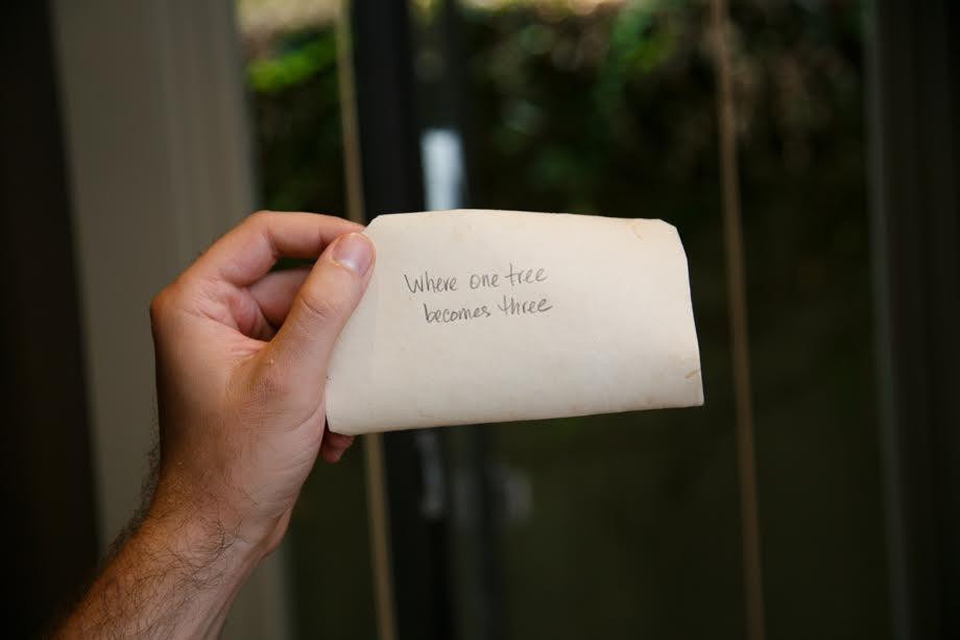 Where one tree
becomes three